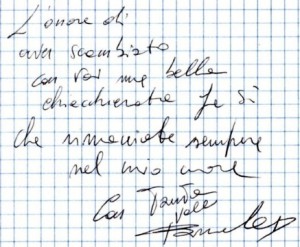 L'onore di
aver scambiato
con voi una bella
chiacchierata fa sì
che rimaniate sempre
nel mio cuore
Con Tanta